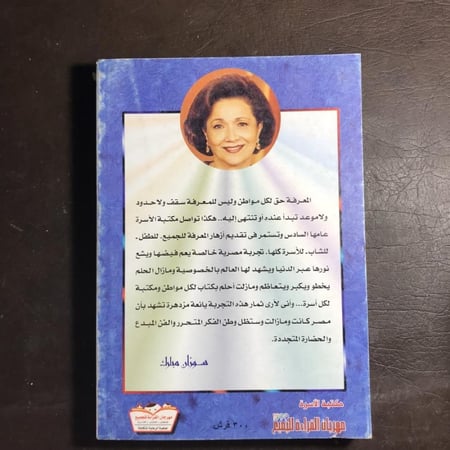 المعرفة حق لكل مواطن وليس للمعرفة سقف ولاحدود
ولاموعد تبدأ عنده أو تنتهى إليه.. هكذا تواصل مكتبة الأسرة
عامها السادس وتستمر فى تقديم أزهار المعرفة للجميع. للطفل -
للشاب - للأسرة كلها. تجربة مصرية خالصة يعم فيضها ويشع
نورها عبر الدنيا ويشهد لها العالم بالخصوصية ومازال الحلم
يخطو ويكبر ويتعاظم ومازلت أحلم بكتاب لكل مواطن ومكتبة
لكل أسرة... وأنى لأرى ثمار هذه التجربة يانعة مزدهرة تشهد بأن
مصر كانت ومازالت وستظل وطن الفكر المتحرر والفن المبدع
والحضارة المتجددة.
سوزان مبارك
مكتبة الأسرة
مهرجان القراءة للجميع
٣٠٠ قرش
مهرجان القراءة للجميع
جمعية الرعاية المتكاملة